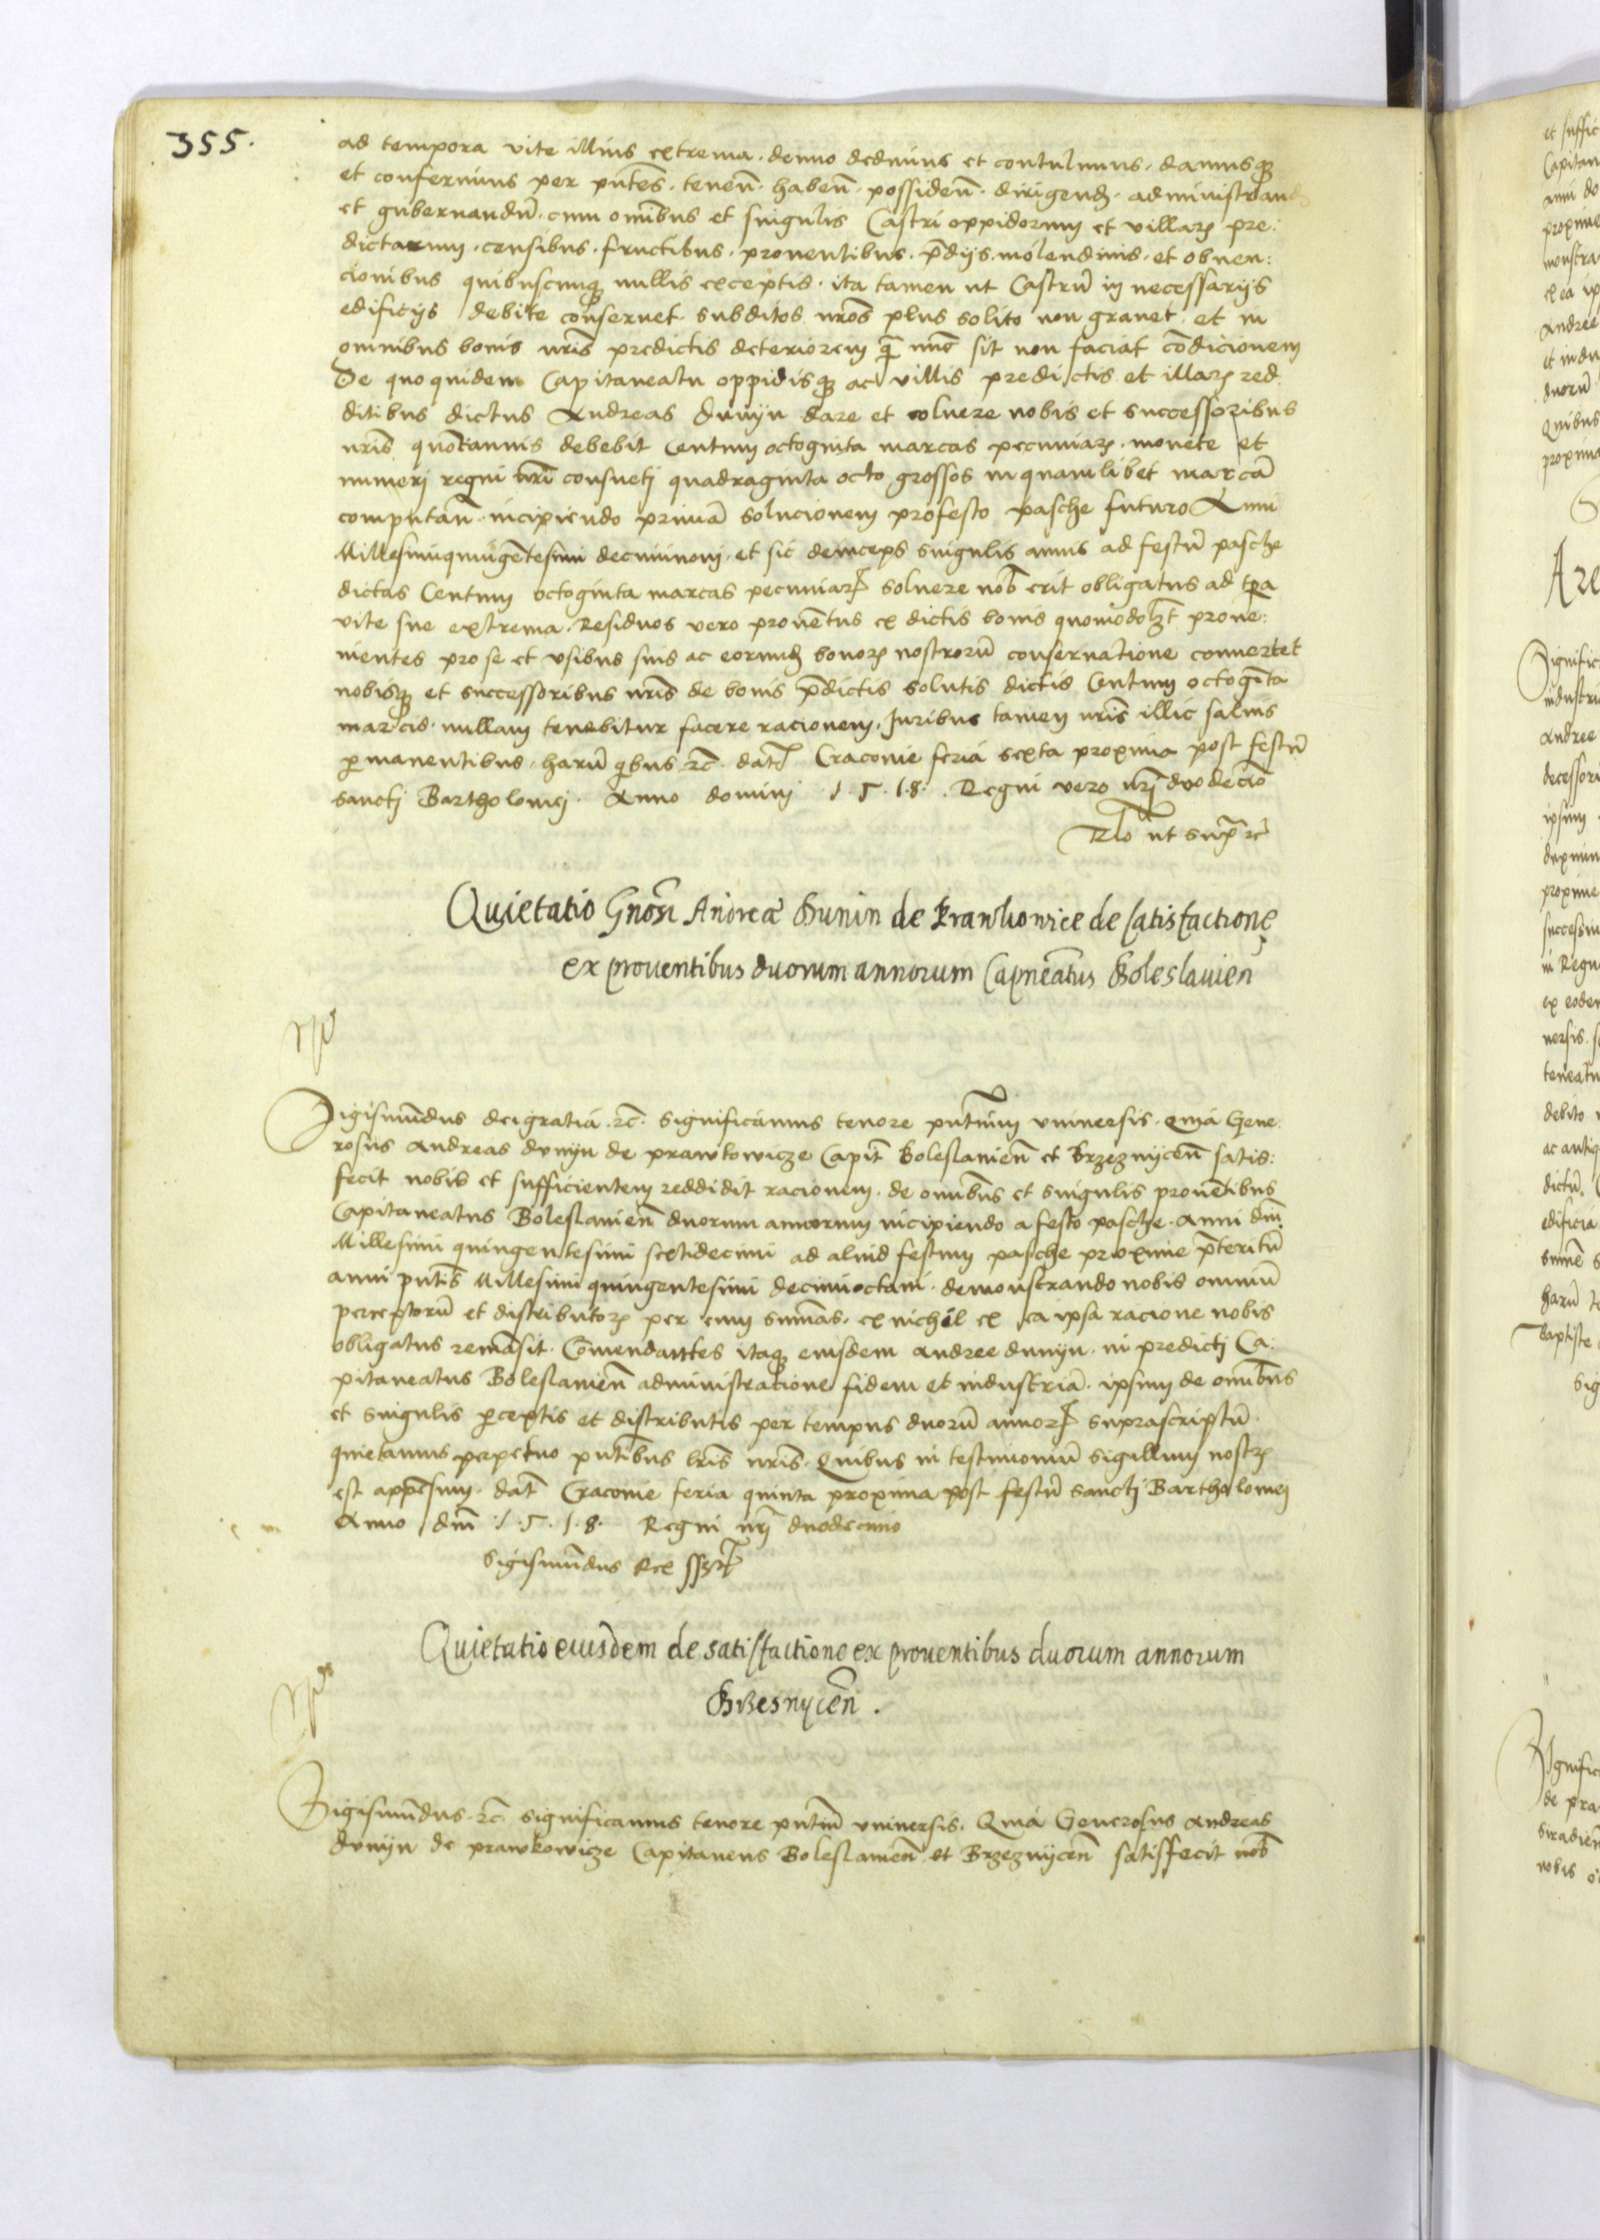 355.
ad tempora vite illius extrema. denuo dedimus et contulimus. damusq3
et conferimus per pntes. tenen̄. haben̄. possiden̄. dirigend. administrand
et gubernandū. cum omībus et singulis Castri oppidorum et villarꝝ pre:
dictarum. censibus. fructibus. prouentibus. p̄dijs. molendinis. et obuen:
cionibus quibuscunq3 nullis exceptis. ita tamen ut Castrū in necessarijs
edificijs debite conseruet. subditos nr̄os plus solito non grauet. et in
omnibus bonis nr̄is predictis deteriorem q̄ nūc sit non faciat condicionem
De quo quidem Capitaneatu oppidisq3 ac villis predictis et illarꝝ red
ditibus dictus Andreas dunyn dare et soluere nobis et successoribus
nr̄is quotannis debebit Centum octoginta marcas pecuniarꝝ. monete et
numeri regni nr̄i consueti quadraginta octo grossos in quamlibet marcā
computan̄. incipiendo primā solucionem pro festo pasche futuro Anni
Millesimiquingētesimi decimi noni. et sic deinceps singulis annis ad festū pasche
dictas Centum octoginta marcas pecuniarꝝ soluere nob̄ erit obligatus ad tpa
vite sue extrema. Residuos vero prouētus ex dictis bonis quomodol3t proue:
nientes pro se et vsibus suis ac eorund bonorꝝ nostrorū conseruatione conuertet
nobisq3 et successoribus nr̄is de bonis p̄dictis solutis dictis Centum octogīta
marcis. nullam tenebitur facere racionem. Juribus tamen nr̄is illic saluis
ꝑmanentibus. harū q̄bus ꝛc̄. dat̄ Cracouie feria sexta proxima post festū
sancti Bartholomei. Anno domini 1.5.18. Regni vero nr̄i duodecīo
Rlo ut supra ꝛc̄
Quietatio Gnosi Andreæ Dunin de Prawkowice de satisfactione
ex prouentibus duorum annorum Capneātus Boleslauien
Sigismūdus deigratia ꝛc̄. significamus tenore pntium vniuersis. Quia Gene
rosus Andreas dvnyn de prawkowicze Capit̄ Boleslauien̄ et Brzeznycen̄ satis:
fecit nobis et sufficientem reddidit racionem. de omībus et singulis prouētibus
Capitaneatus Boleslauien̄ duorum annorum incipiendo a festo pasche. anni dn̄i
Millesimi quingentesimi sextidecimi ad aliud festum pasche proxime p̄teritū
anni pn̄tis Millesimi quingentesimi decimioctaui. demonstrando nobis omniū
perceptorū et distributorꝝ per eum summas. ex nichil ex ea ipsa racione nobis
obligatus remāsit. Comendantes itaq3 eiusdem andree dunyn. in predicti Ca:
pitaneatus Boleslauien̄ administracione fidem et industriā. ipsum de omībus
et singulis ꝑceptis et distributis per tempus duorū annorꝝ suprascriptū.
quietamus perpetuo pntibus lr̄is nr̄is. Quibus in testimoniū sigillum nostrꝝ
est appēsum. dat̄ Cracouie feria quinta proxima post festū sancti Bartholomei
Anno dn̄i 1.5.18. Regni nr̄i duodecimo
Sigismūdus Rex sst̄
Quietatio eiusdem de satisfactione ex prouentibus duorum annorum
Brzesnycen̄.
Sigismūdus. ꝛc̄. significamus tenore pntiū vniuersis. Quia Generosus andreas
dvnyn de prawkowicze Capitaneus Boleslauien̄ et Brzeznycen̄ satisfecit nob̄